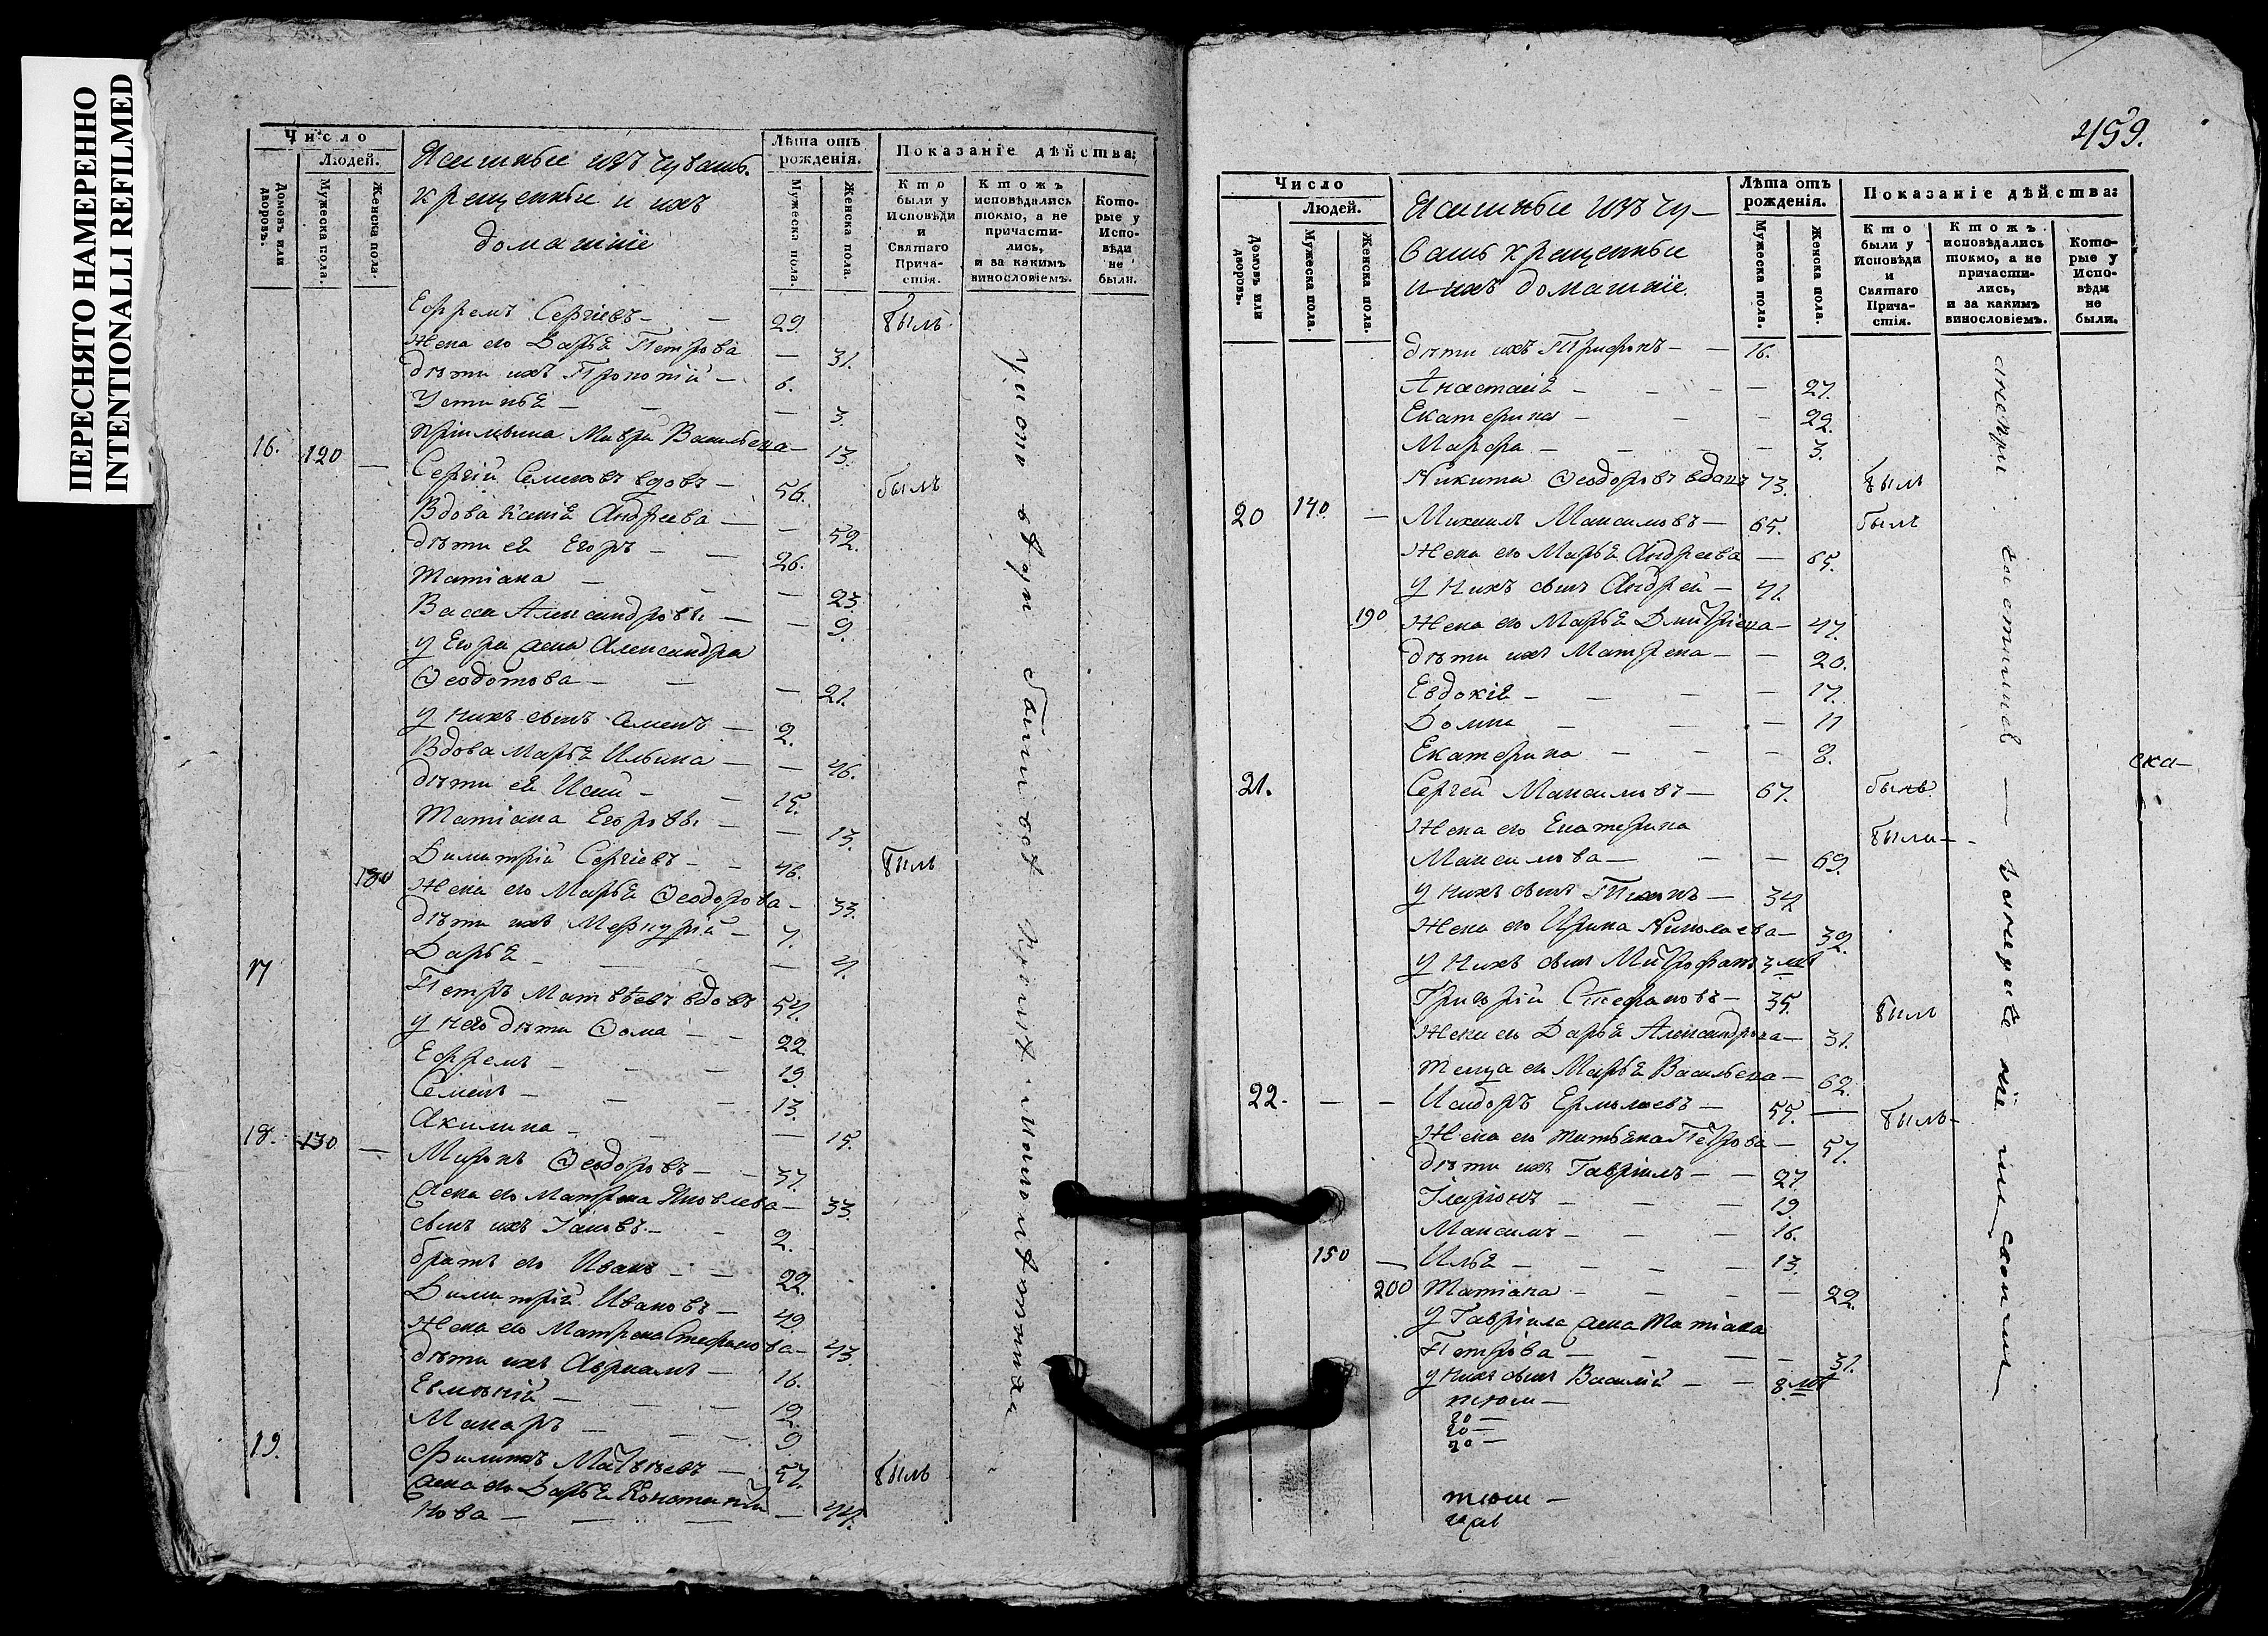 ПЕРЕСНЯТО НАМЕРЕННО
INTENTIONALLI REFILMED
Число
Людей.
Домовъ или дворовъ.
Мужеска пола.
Женска пола.
Ясашные изъ чувашъ
крещенные и ихъ
домашніе
Лѣта отъ рожденія.
Мужеска пола.
Женска пола.
Показаніе дѣйства:
Кто были у Исповѣди и Святаго Причастія.
Ктожъ исповѣдались токмо, а не причастились, и за какимъ винословіемъ.
Которые у Исповѣди не были.
Ефремъ Сергіевъ — — 29. былъ
Жена его Дарья Петрова — 31.
дѣти ихъ Прокопій — 6.
Устинья — — — 3.
Мавра Васильева — 13.
16. 120 — Сергій Семеновъ вдовъ — 56. былъ
Вдова Ксенія Андреева — — 52.
дѣти ея Егоръ — — 26.
Татіана — — — 23.
Васса Александрова — — 9.
у Егора жена Александра
Ѳеодотова — — — 21.
у нихъ сынъ Семенъ — 2.
Вдова Марья Ильина — — 46.
дѣти ея Исай — — 15.
Татіана Егорова — — 13.
Димитрій Сергіевъ — — 46. былъ
180 Жена его Марья Ѳеодорова — 33.
дѣти ихъ Меркурій — 7.
Дарья — — — 4.
17 Петръ Матвѣевъ вдовъ 54.
у него дѣти Ѳома — — 22.
Ефремъ — — — 19.
Семенъ — — — 13.
Акилина — — — 15.
18. 130 — Миронъ Ѳеодоровъ — — 37.
жена его Матрена Яковлева — 33.
сынъ ихъ Іаковъ — — 2.
братъ его Иванъ — — 22.
Димитрій Ивановъ — 49.
Жена его Матрена Стефанова — 43.
дѣти ихъ Авраамъ — 16.
Евмений — — — 12.
Макаръ — — — 9.
19. Филиппъ Матвѣевъ — 57. былъ
жена его Дарья Константи
нова — — — — 44.
459.
Число
Людей.
Домовъ или дворовъ.
Мужеска пола.
Женска пола.
Ясашные изъ чу—
вашъ крещенные
и ихъ домашніе.
Лѣта отъ рожденія.
Мужеска пола.
Женска пола.
Показаніе дѣйства:
Кто были у Исповѣди и Святаго Причастія.
Ктожъ исповѣдались токмо, а не причастились, и за какимъ винословіемъ.
Которые у Исповѣди не были.
дѣти ихъ Трифонъ — — 16.
Анастасія — — — 27.
Екатерина — — — 22.
Марфа — — — 3.
Никита Ѳеодоровъ вдовъ 73. былъ
20 140. — Михаилъ Максимовъ — 65. былъ
Жена его Марья Андреева — 65.
у нихъ сынъ Андрей — 41.
190 Жена его Марья Дмитріева — 47.
дѣти ихъ Матрена — — 20.
Евдокія — — — 17.
Домна — — — 11
Екатерина — — — 8.
21. Сергей Максимовъ — 67. былъ
Жена его Екатерина
Максимова — — — 69. была —
у нихъ сынъ — 34.
Жена его Ирина Николаева — 32.
у нихъ сынъ Митрофанъ 3 мѣ
Григорій Стефановъ — 35. былъ
Жена его Дарья Александрова — 31.
теща его Марья Васильева — 62.
22. — — Исидоръ Ермолаевъ — 55. — былъ —
Жена его Татьяна Петрова — 57.
дѣти ихъ Гавріилъ — — 27.
Іларіонъ — — — 19.
Максимъ — — — 16.
150 — Илья — — — — 13.
200 Татіана — — — — 22.
у Гавріила жена Татіана
Петрова — — — — 31.
у нихъ сынъ Василій — — 8 мѣ